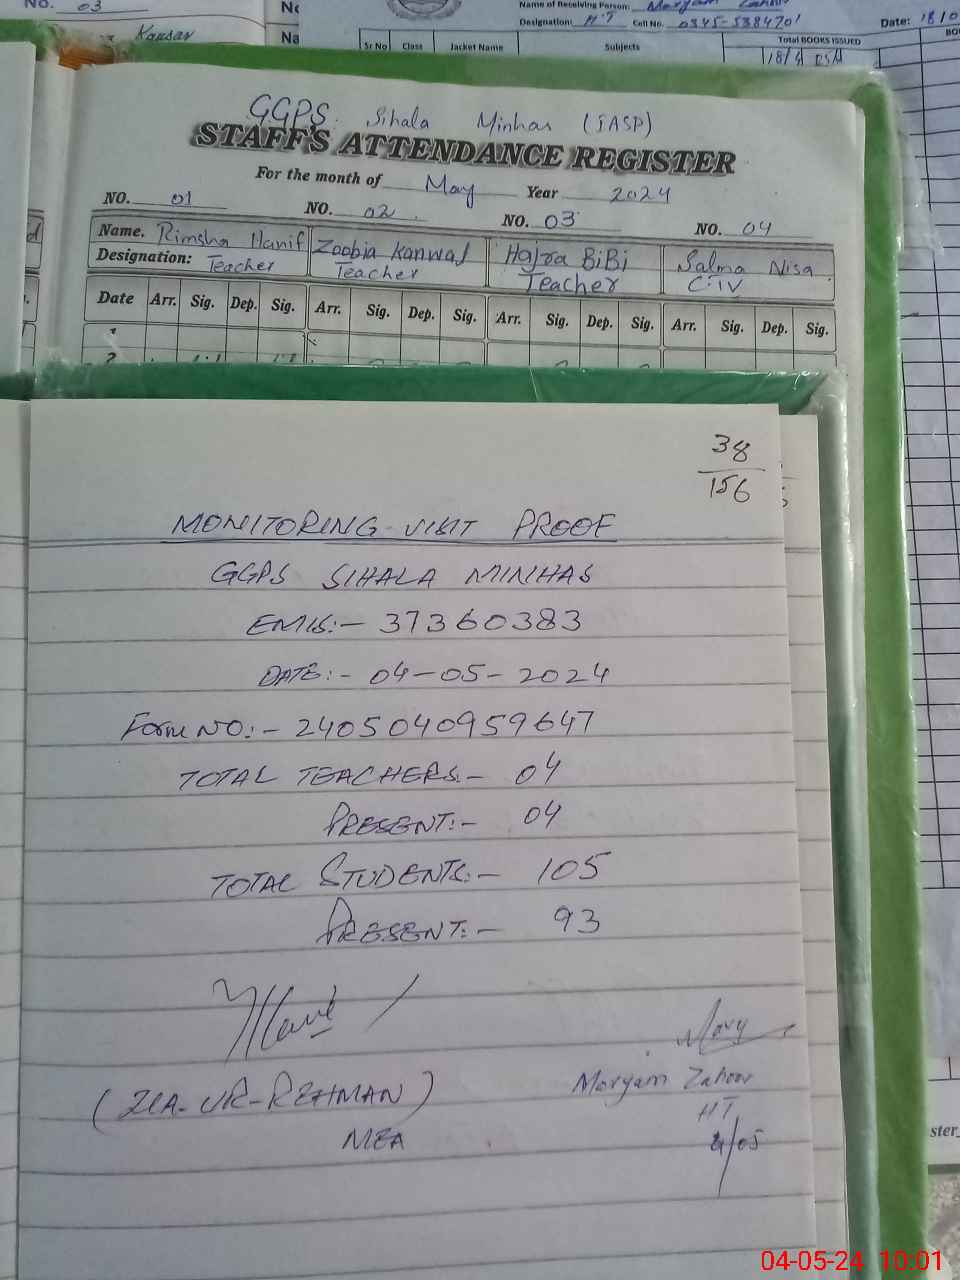 NO. 03
Kausar
Name of Receiving Person: Maryam Zahoor
Designation: HT Cell No. 0345-5384701
Date: 18/0
Sr No Class Jacket Name Subjects Total BOOKS ISSUED
18/4
GGPS Sihala Minhas (IASP)
STAFF'S ATTENDANCE REGISTER
For the month of May Year 2024
NO. 01 NO. 02 NO. 03 NO. 04
Name. Rimsha Hanif Zoobia Kanwal Hajra BiBi Salma Nisa
Designation: Teacher Teacher Teacher C-IV
Date Arr. Sig. Dep. Sig. Arr. Sig. Dep. Sig. Arr. Sig. Dep. Sig. Arr. Sig. Dep. Sig.
2
38
156
MONITORING VISIT PROOF
GGPS SIHALA MINHAS
EMIS:- 37360383
DATE:- 04-05-2024
Form NO:- 2405040959647
TOTAL TEACHERS:- 04
PRESENT:- 04
TOTAL STUDENTS:- 105
PRESENT:- 93
(ZIA-UR-REHMAN)
MEA
Mary
Maryam Zahoor
HT
4/05
ster_
04-05-24 10:01